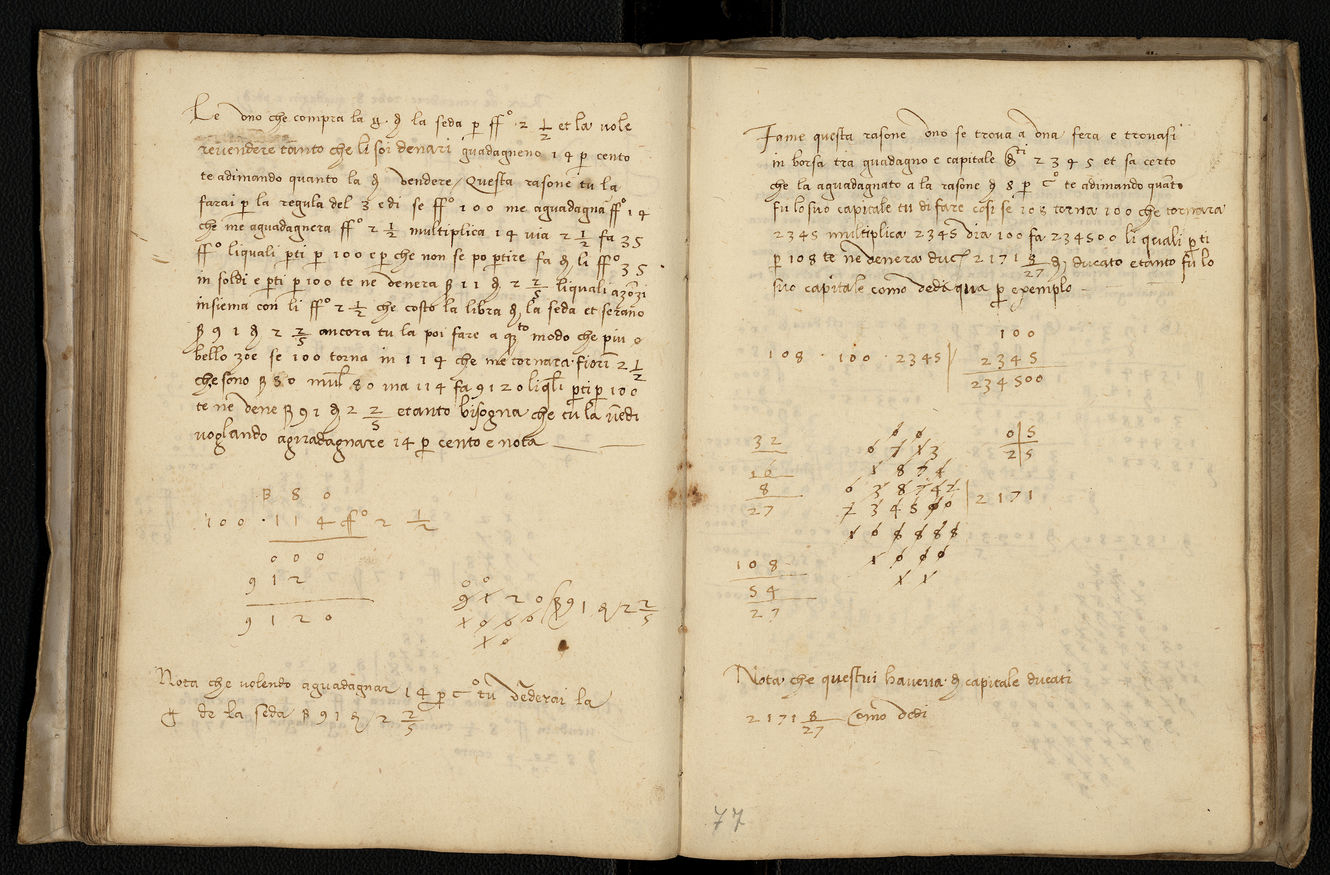 Le uno che compra la g. di la seda p ff° 2 1/2 et la vole
revendere tanto che li soi denari guadagneno 14 p cento
te adimando quanto la di vendere / Questa rasone tu la
farai p la regula del 3 e di se ff° 100 me aguadagna ff° 14
che me aguadagnera ff° 2 1/2 multiplica 14 via 2 1/2 fa 35
ff° liquali pti p 100 e p che non se po ptire fa di li ff° 35
in soldi e pti p 100 te ne venera ß 11 di 2 2/5 liquali azonzi
insiema con li ff° 2 1/2 che costo la libra di la seda et serano
ß 91 di 2 2/5 ancora tu la poi fare a qsto modo che piu e
bello zoe se 100 torna in 114 che me tornara fiorī 2 1/2
che sono ß 80 mul 80 via 114 fa 9120 liqli pti p 100
te ne vene ß 91 di 2 2/5 e tanto bisogna che tu la vēdi
voglando aguadagnare 14 p cento e nota
ß 80
100 · 114 ff° 2 1/2
000
912
9120
00
9120 ( ß 91 di 2 2/5
1000
10
Nota che volendo aguadagnar 14 p c° tu vēderai la
di de la seda ß 91 di 2 2/5
Fame questa rasone uno se trova a una fera e trovasi
in borsa tra guadagno e capitale Dti 2345 et sa certo
che la aguadagnato a la rasone di 8 p c° te adimando quāto
fu lo suo capitale tu di fare cosi se 108 torna 100 che tornara
2345 multiplica 2345 via 100 fa 234500 li quali pti
p 108 te ne venera duc 2171 8/27 di ducato e tanto fu lo
suo capitale como vedi qua p exemplo
100
108 · 100 · 2345 / 2345
234500
32
16
8
27
0|5
2|5
00
0713
1874
038747 | 2171
734500
108888
1000
11
108
54
27
Nota che questui haveva di capitale ducati
2171 8/27 Como vedi
77